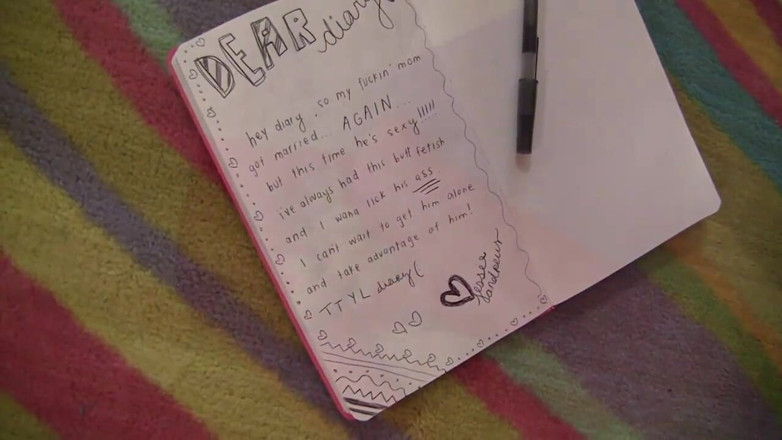 DEAR diary
hey diary, so my fuckin' mom
got married... AGAIN...
but this time he's sexy!!!!!
i've always had this butt fetish
and I wana lick his ass.
I can't wait to get him alone
and take advantage of him!
TTYL diary(